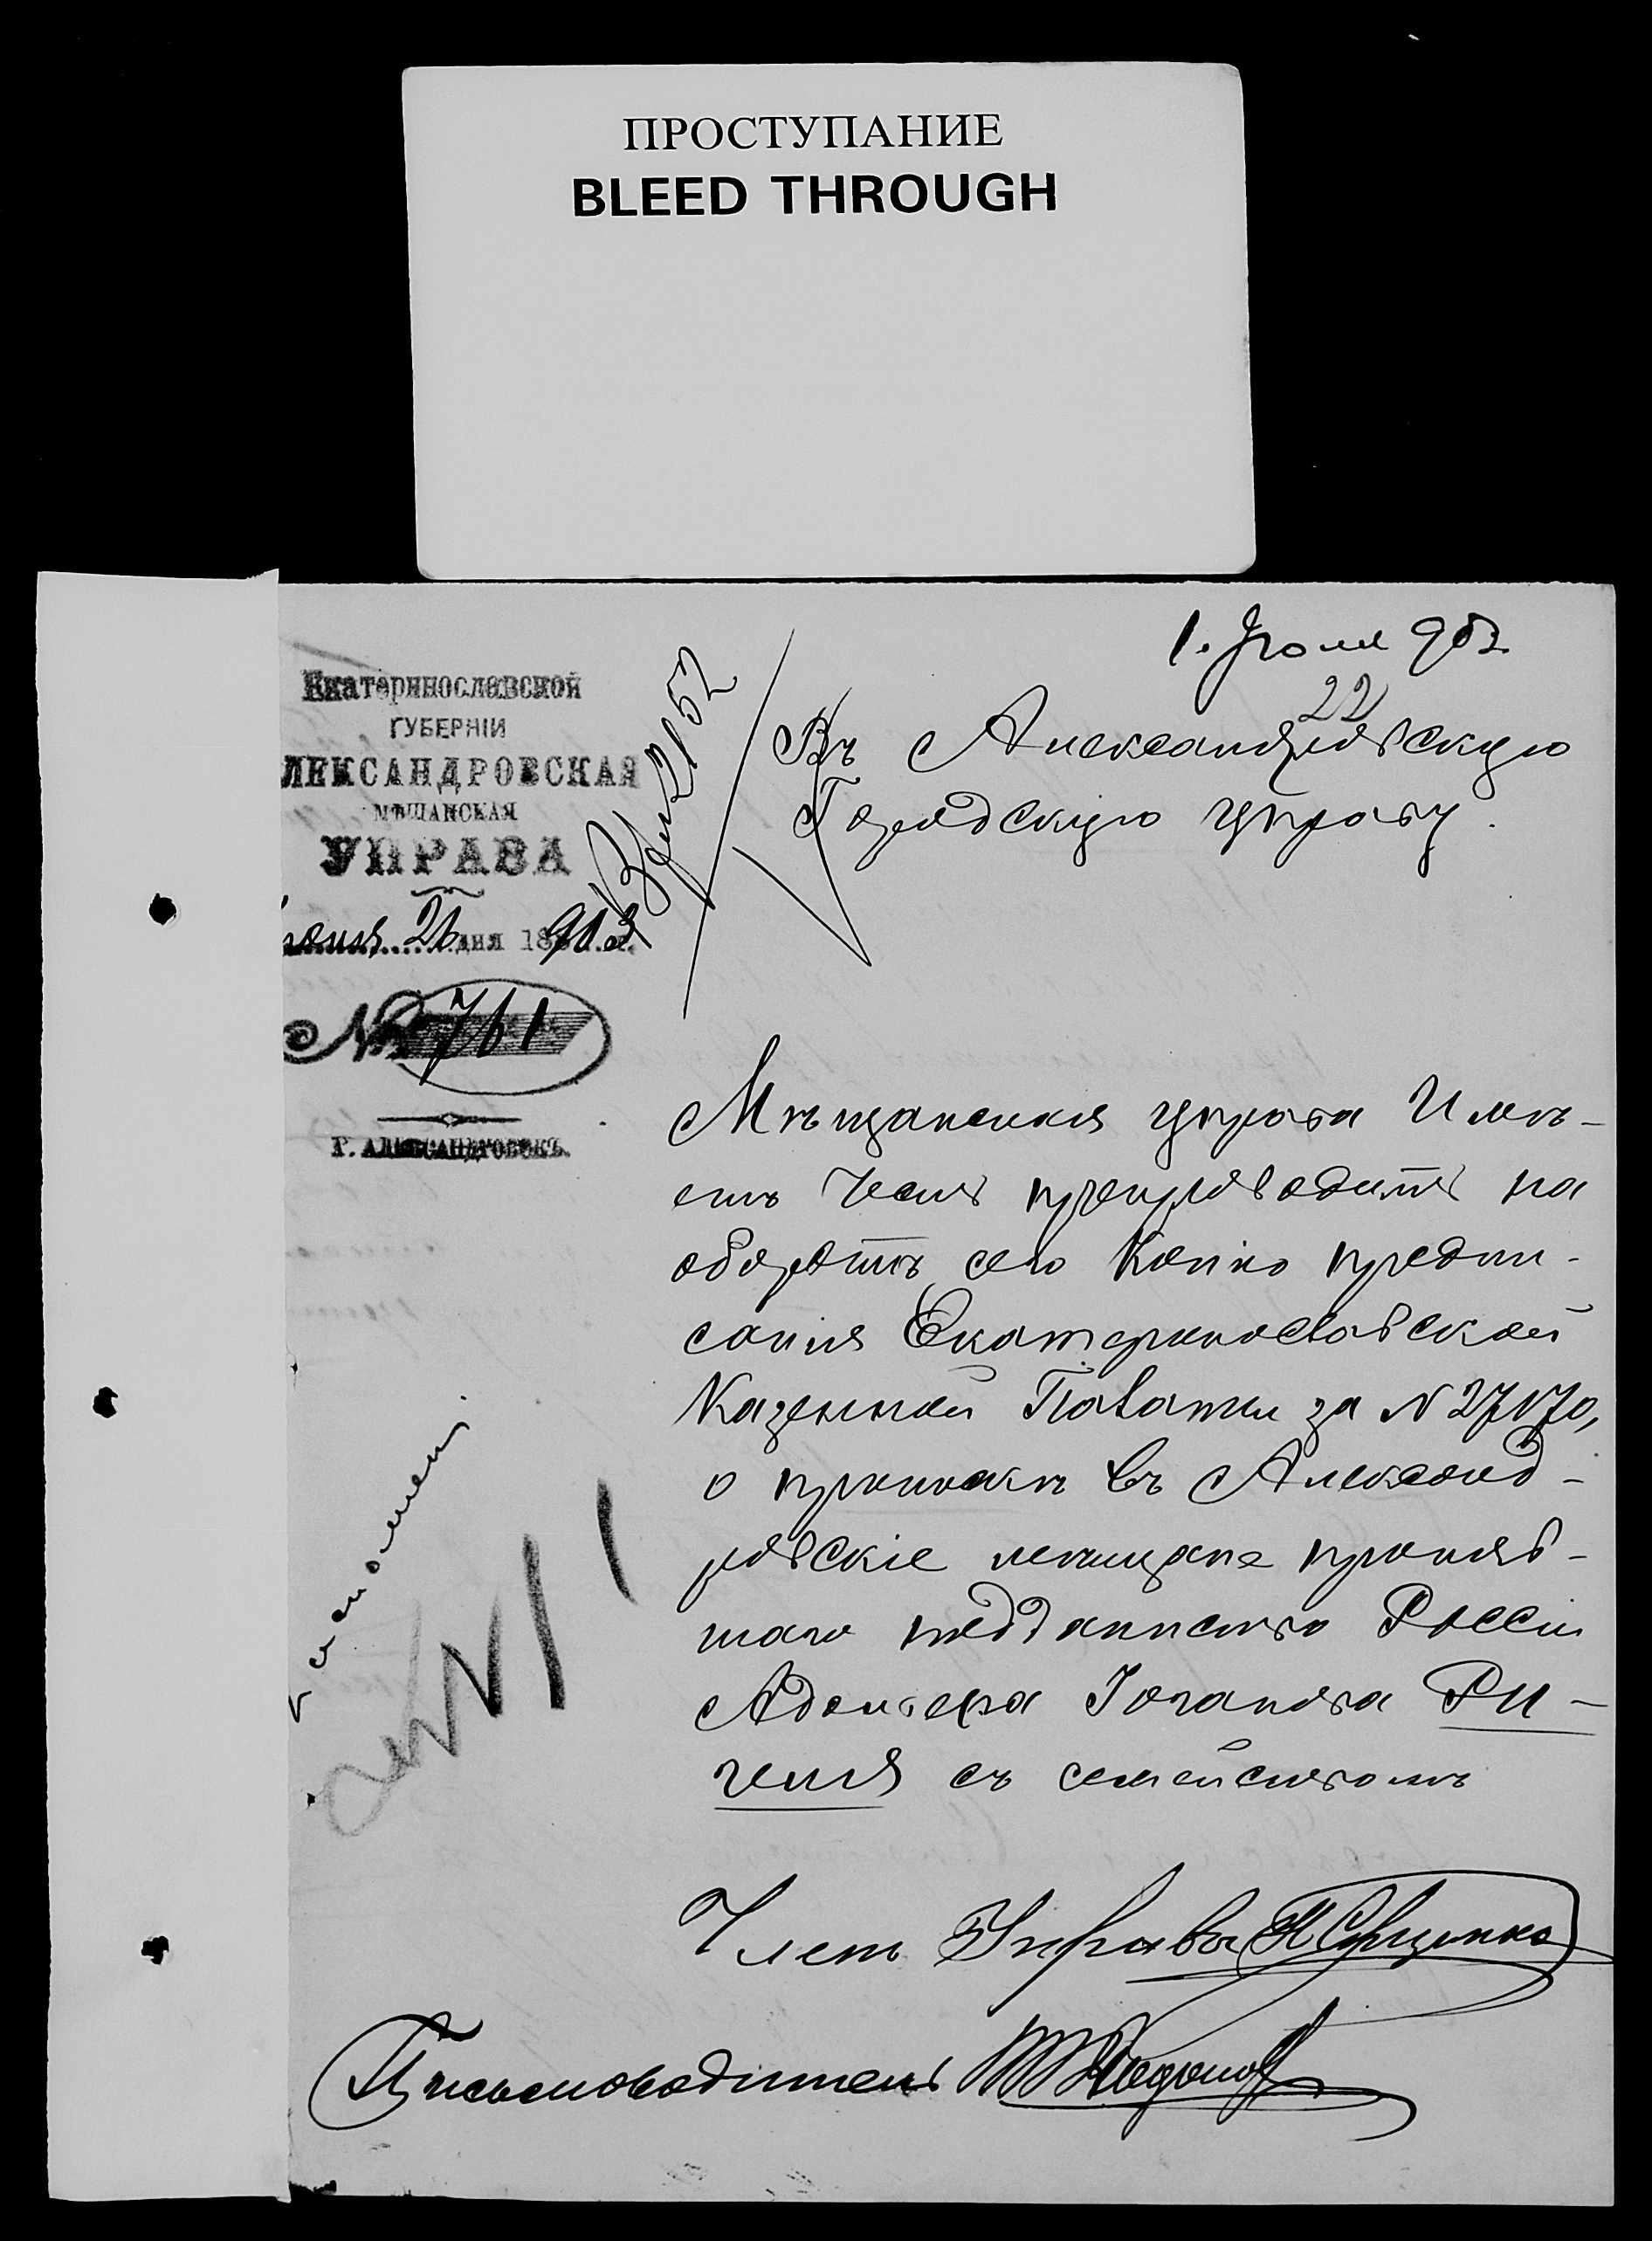 ПРОСТУПАНИЕ
BLEED THROUGH
1. Іюля 902
22
Екатеринославской
ГУБЕРНІИ
ЛЕКСАНДРОВСКАЯ
МѢЩАНСКАЯ
УПРАВА
26 дня
№ 761
Г. АЛЕКСАНДРОВСКЪ.
2152
Въ Александровскую
Городскую управу.
Мѣщанская управа Имѣ-
етъ честь препроводить на
оборотѣ сего Копію предпи-
санія Екатеринославской
Казенной Палаты за №
о припискѣ въ Александ-
ровскіе мещане приняв-
шаго подданство Россіи
Адольфа Іоганова Ри-
геля съ семействомъ
Членъ Управы
Письмоводитель